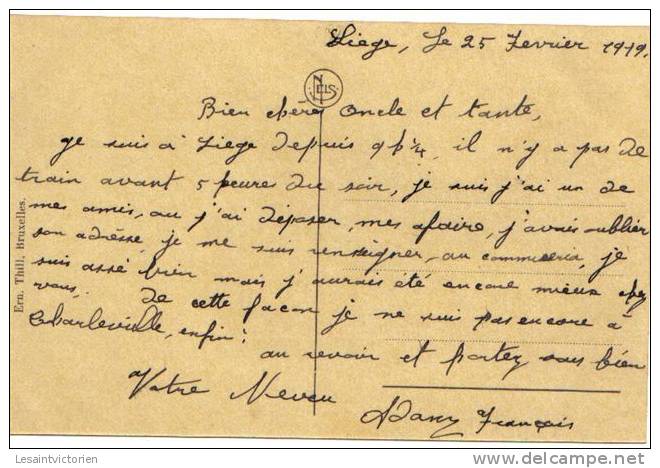 Liege, Le 25 Fevrier 1919.
NELS
Bien chère Oncle et tante,
Je suis à Liege depuis 9h¼, il n'y a pas de
train avant 5 heures du soir, je suis j'ai un de
mes amis, au j'ai déposer, mes afaire, j'avais oublier
son adrésse, je me suis renseigner, au commissria, je
suis assé bien mais j'aurais été encore mieux chez
vous. De cette facon je ne suis pas encore à
Charleville, enfin!
au revoir et portez vous bien
Votre Neveu
François
Ern. Thill, Bruxelles.
Lesaintvictorien
delcampe.net